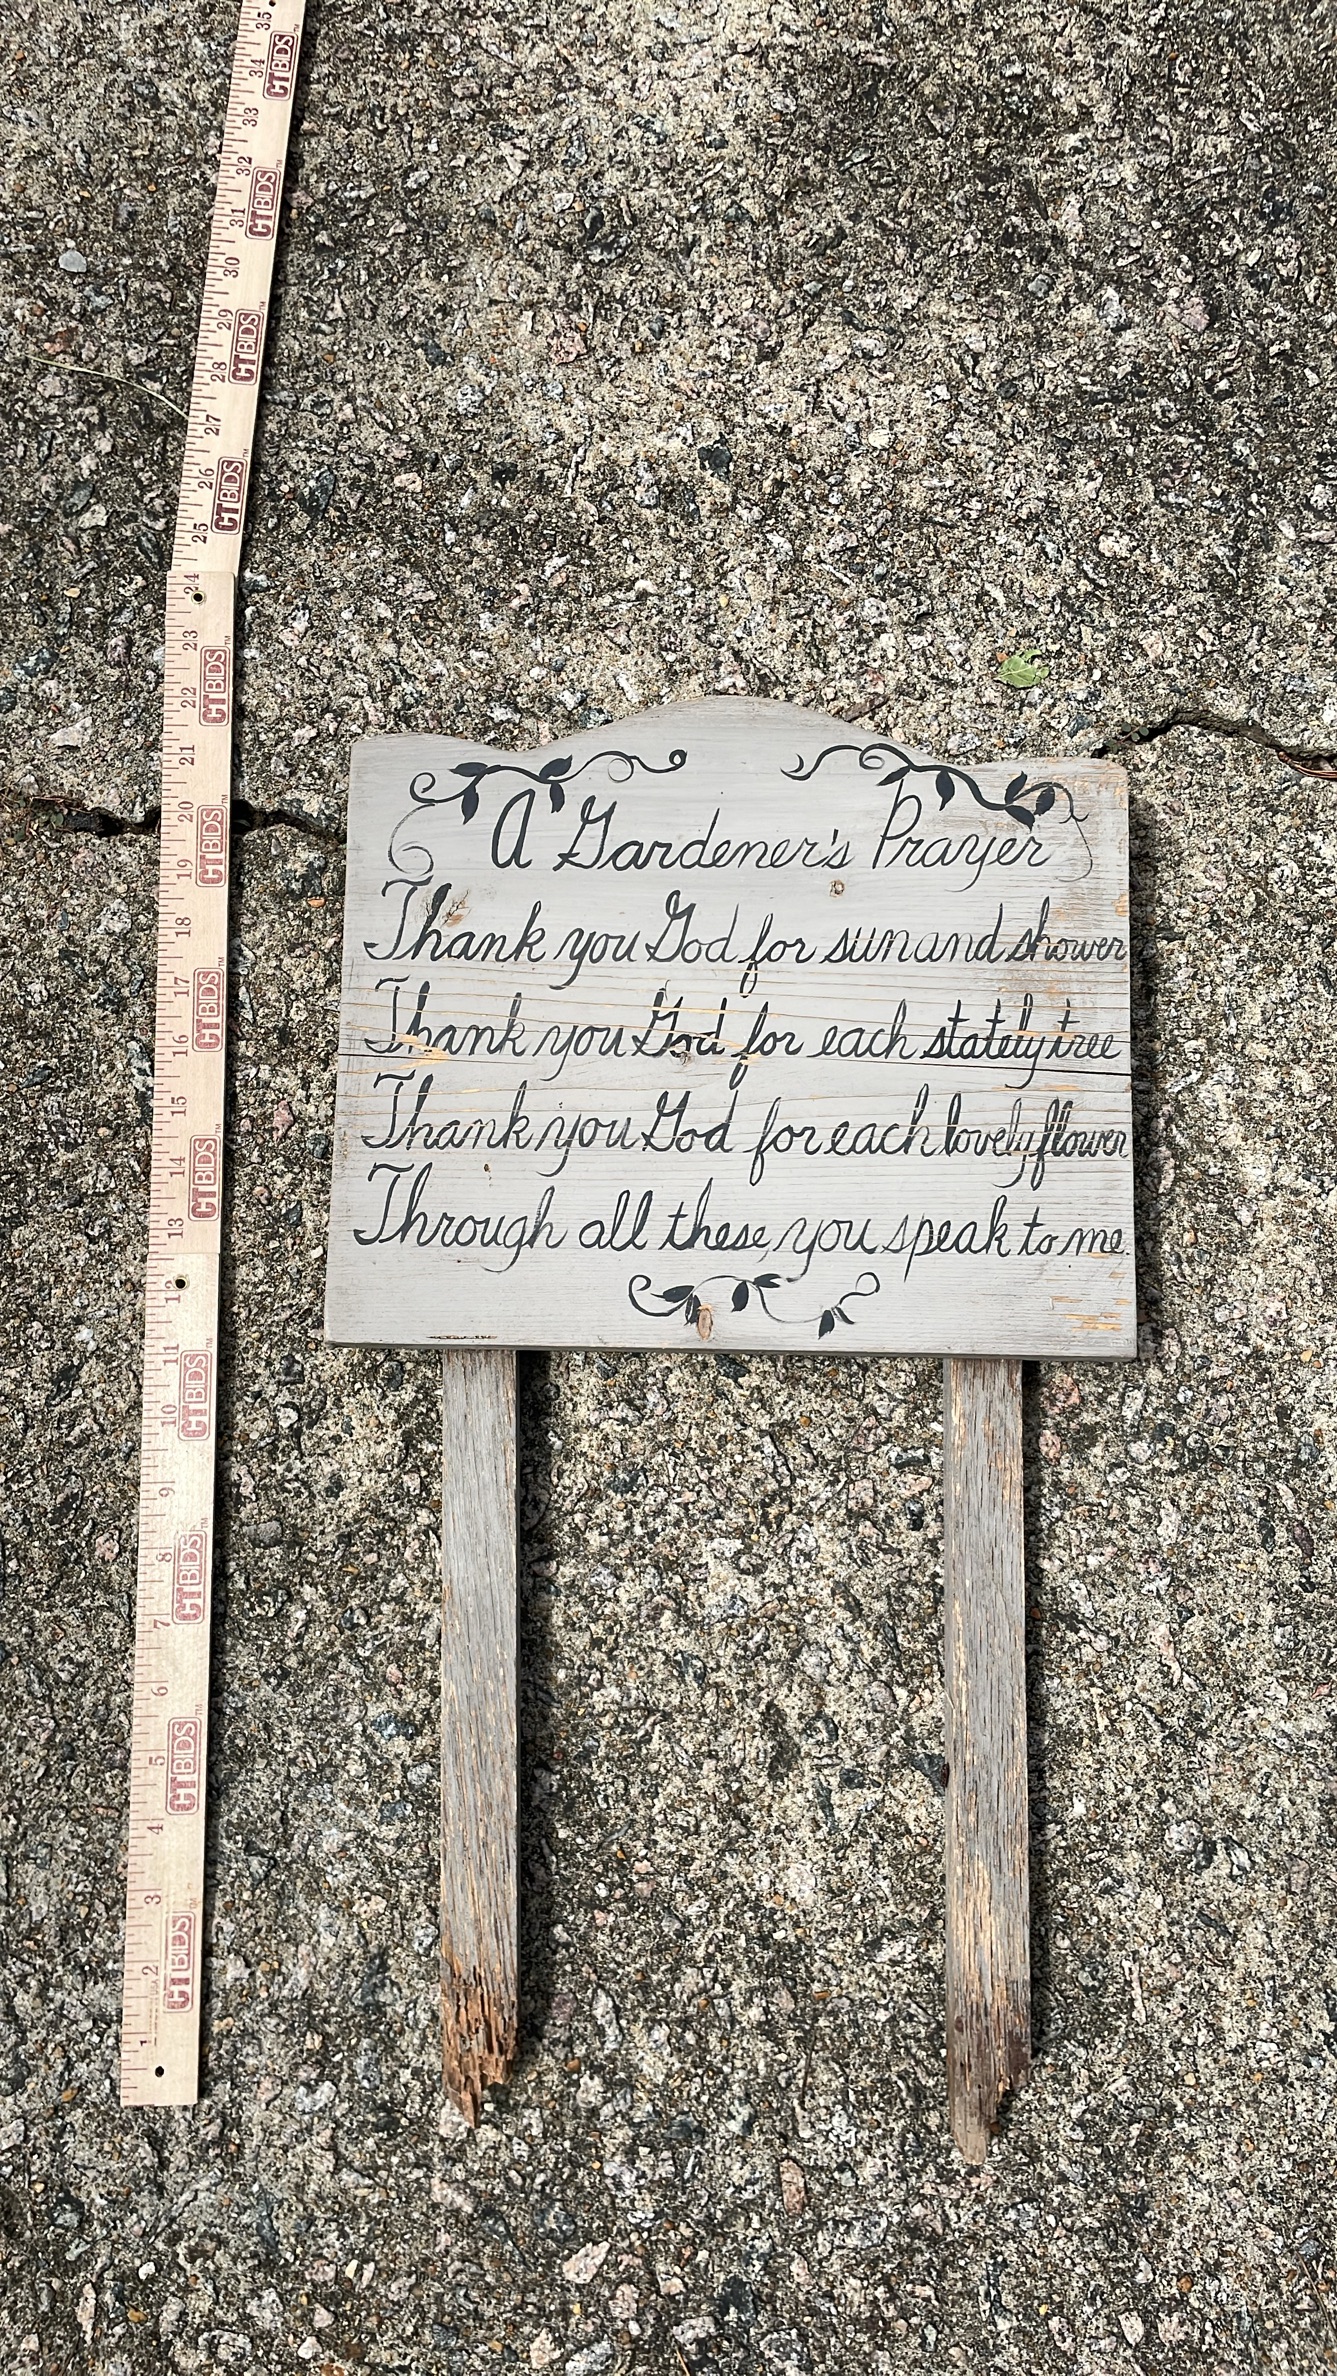 A Gardener's Prayer
Thank you God for sun and shower
Thank you God for each stately tree
Thank you God for each lovely flower
Through all these, you speak to me.
1 2 3 4 5 6 7 8 9 10 11 12 13 14 15 16 17 18 19 20 21 22 23 24 25 26 27 28 29 30 31 32 33 34 35
CTBIDS™
CTBIDS™
CTBIDS™
CTBIDS™
CTBIDS™
CTBIDS™
CTBIDS™
CTBIDS™
CTBIDS™
CTBIDS™
CTBIDS™
CTBIDS™
CTBIDS™